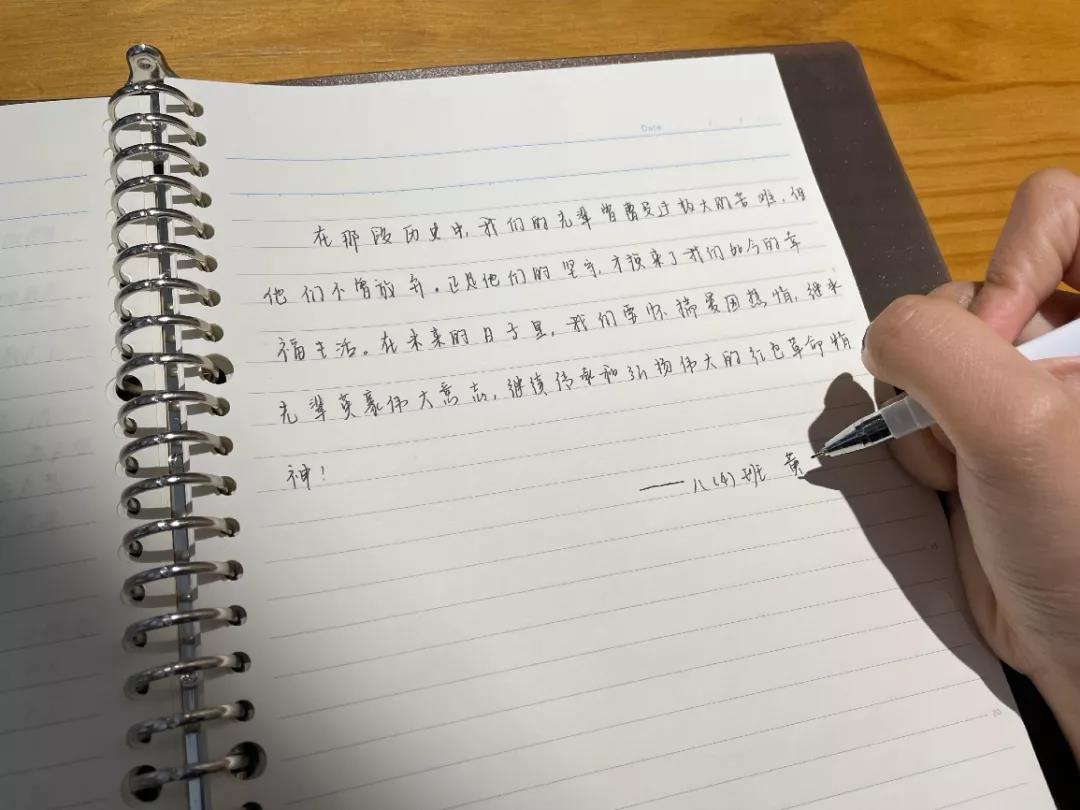 Date
在那段历史中,我们的先辈曾遭受过极大的苦难,但
他们不曾放弃。正是他们的坚守,才换来了我们如今的幸
福生活。在未来的日子里,我们要怀揣爱国热情,继承
先辈英豪伟大意志,继续传承和弘扬伟大的红色革命精
神!
——八(4)班 黄